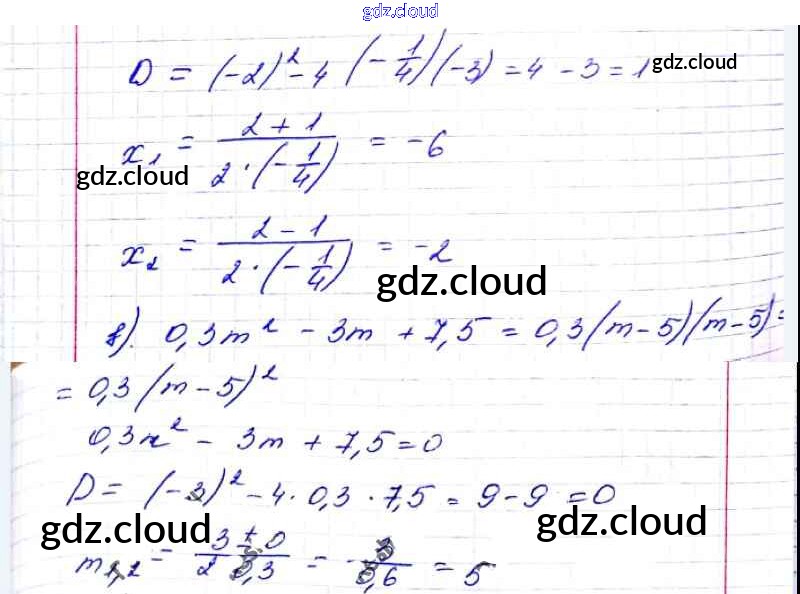 gdz.cloud
D = (-2)² - 4 (-1/4)(-3) = 4 - 3 = 1 gdz.cloud
x₁ = (2 + 1)/(2 · (-1/4)) = -6
gdz.cloud
x₂ = (2 - 1)/(2 · (-1/4)) = -2
gdz.cloud
в). 0,3m² - 3m + 7,5 = 0,3(m-5)(m-5) =
= 0,3(m-5)²
0,3m² - 3m + 7,5 = 0
D = (-3)² - 4 · 0,3 · 7,5 = 9 - 9 = 0
gdz.cloud gdz.cloud
m₁,₂ = (3 ± 0)/(2 · 0,3) = 3/0,6 = 5